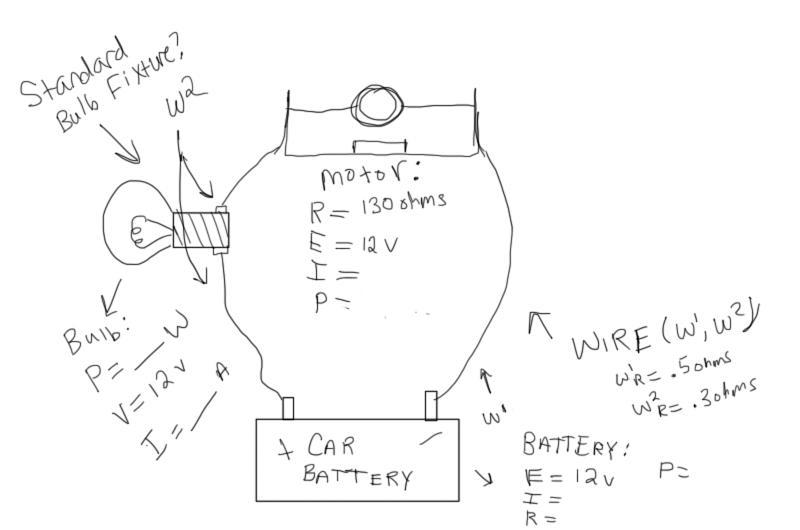 Standard
Bulb Fixture?
W2
motor:
R = 130 ohms
E = 12 V
I =
P =
Bulb:
P = __ W
V = 12 V
I = __ A
WIRE (W', W²)
W'R = .5 ohms
W²R = .3 ohms
W'
+ CAR -
BATTERY
BATTERY:
E = 12 V P =
I =
R =